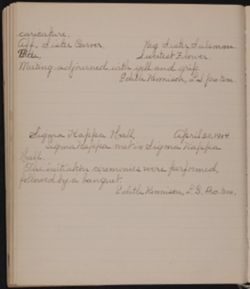 caricature.
Aff. Sister Carver. Neg. Sister Salsman
Sweetest Flower.
Meeting adjourned with yell and grip.
Edith Kennison, L.S. Pro tem.
Sigma Kappa Hall, April 20, 1904
Sigma Kappa met in Sigma Kappa
Hall.
The initiation ceremonies were performed,
followed by a banquet.
Edith Kennison, L.S. Pro tem.